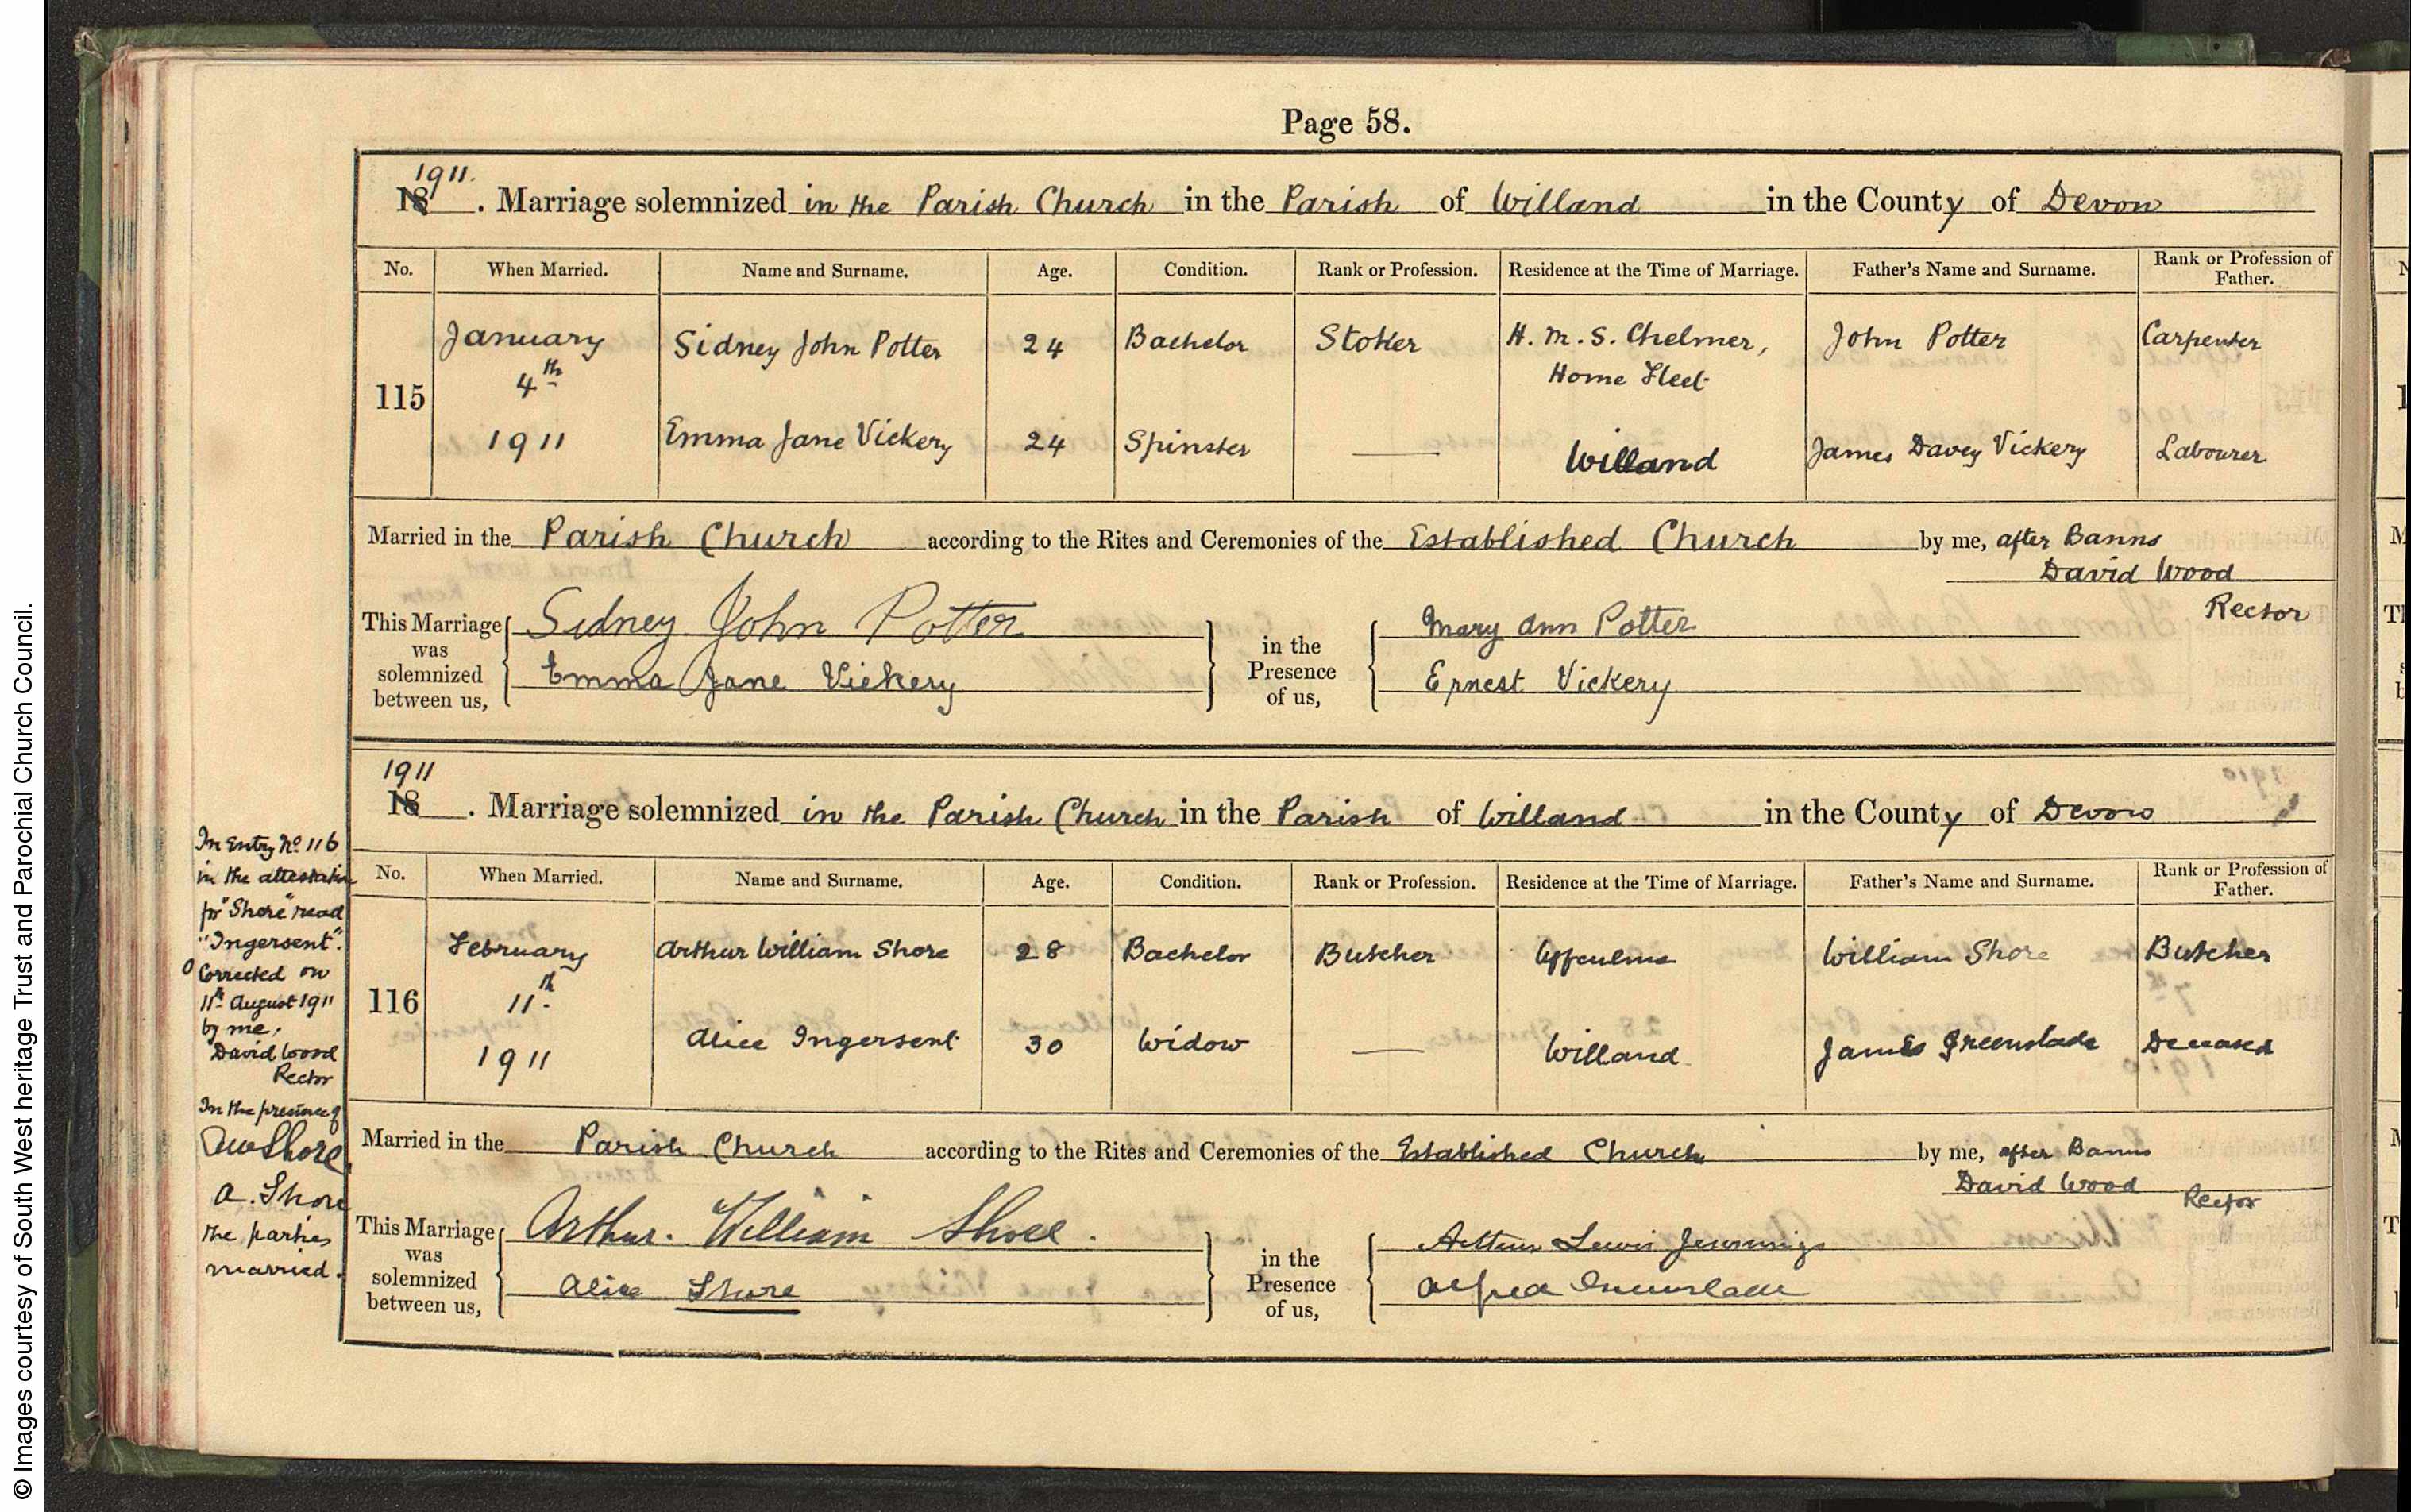 Page 58.
1911.
18 . Marriage solemnized in the Parish Church in the Parish of Willand in the County of Devon
No. When Married. Name and Surname. Age. Condition. Rank or Profession. Residence at the Time of Marriage. Father's Name and Surname. Rank or Profession of Father.
115
January 4th 1911
Sidney John Potter 24 Bachelor Stoker H.M.S. Chelmer, Home Fleet John Potter Carpenter
Emma Jane Vickery 24 Spinster Willand James Davey Vickery Labourer
Married in the Parish Church according to the Rites and Ceremonies of the Established Church by me, after Banns
David Wood
Rector
This Marriage was solemnized between us,
Sidney John Potter
Emma Jane Vickery
in the Presence of us,
Mary Ann Potter
Ernest Vickery
1911
18 . Marriage solemnized in the Parish Church in the Parish of Willand in the County of Devon
No. When Married. Name and Surname. Age. Condition. Rank or Profession. Residence at the Time of Marriage. Father's Name and Surname. Rank or Profession of Father.
116
February 11th 1911
Arthur William Shore 28 Bachelor Butcher Uffculme William Shore Butcher
Alice Ingersent 30 Widow Willand James Greenslade Deceased
Married in the Parish Church according to the Rites and Ceremonies of the Established Church by me, after Banns
David Wood
Rector
This Marriage was solemnized between us,
Arthur. William Shore.
Alice Shore
in the Presence of us,
Arthur Lewis Jennings
Alfred Greenslade
In Entry No 116
in the attestation
for "Shore" read
"Ingersent".
Corrected on
11th August 1911
by me,
David Wood
Rector
In the presence of
AWShore
A. Shore
the parties
married.
© Images courtesy of South West heritage Trust and Parochial Church Council.